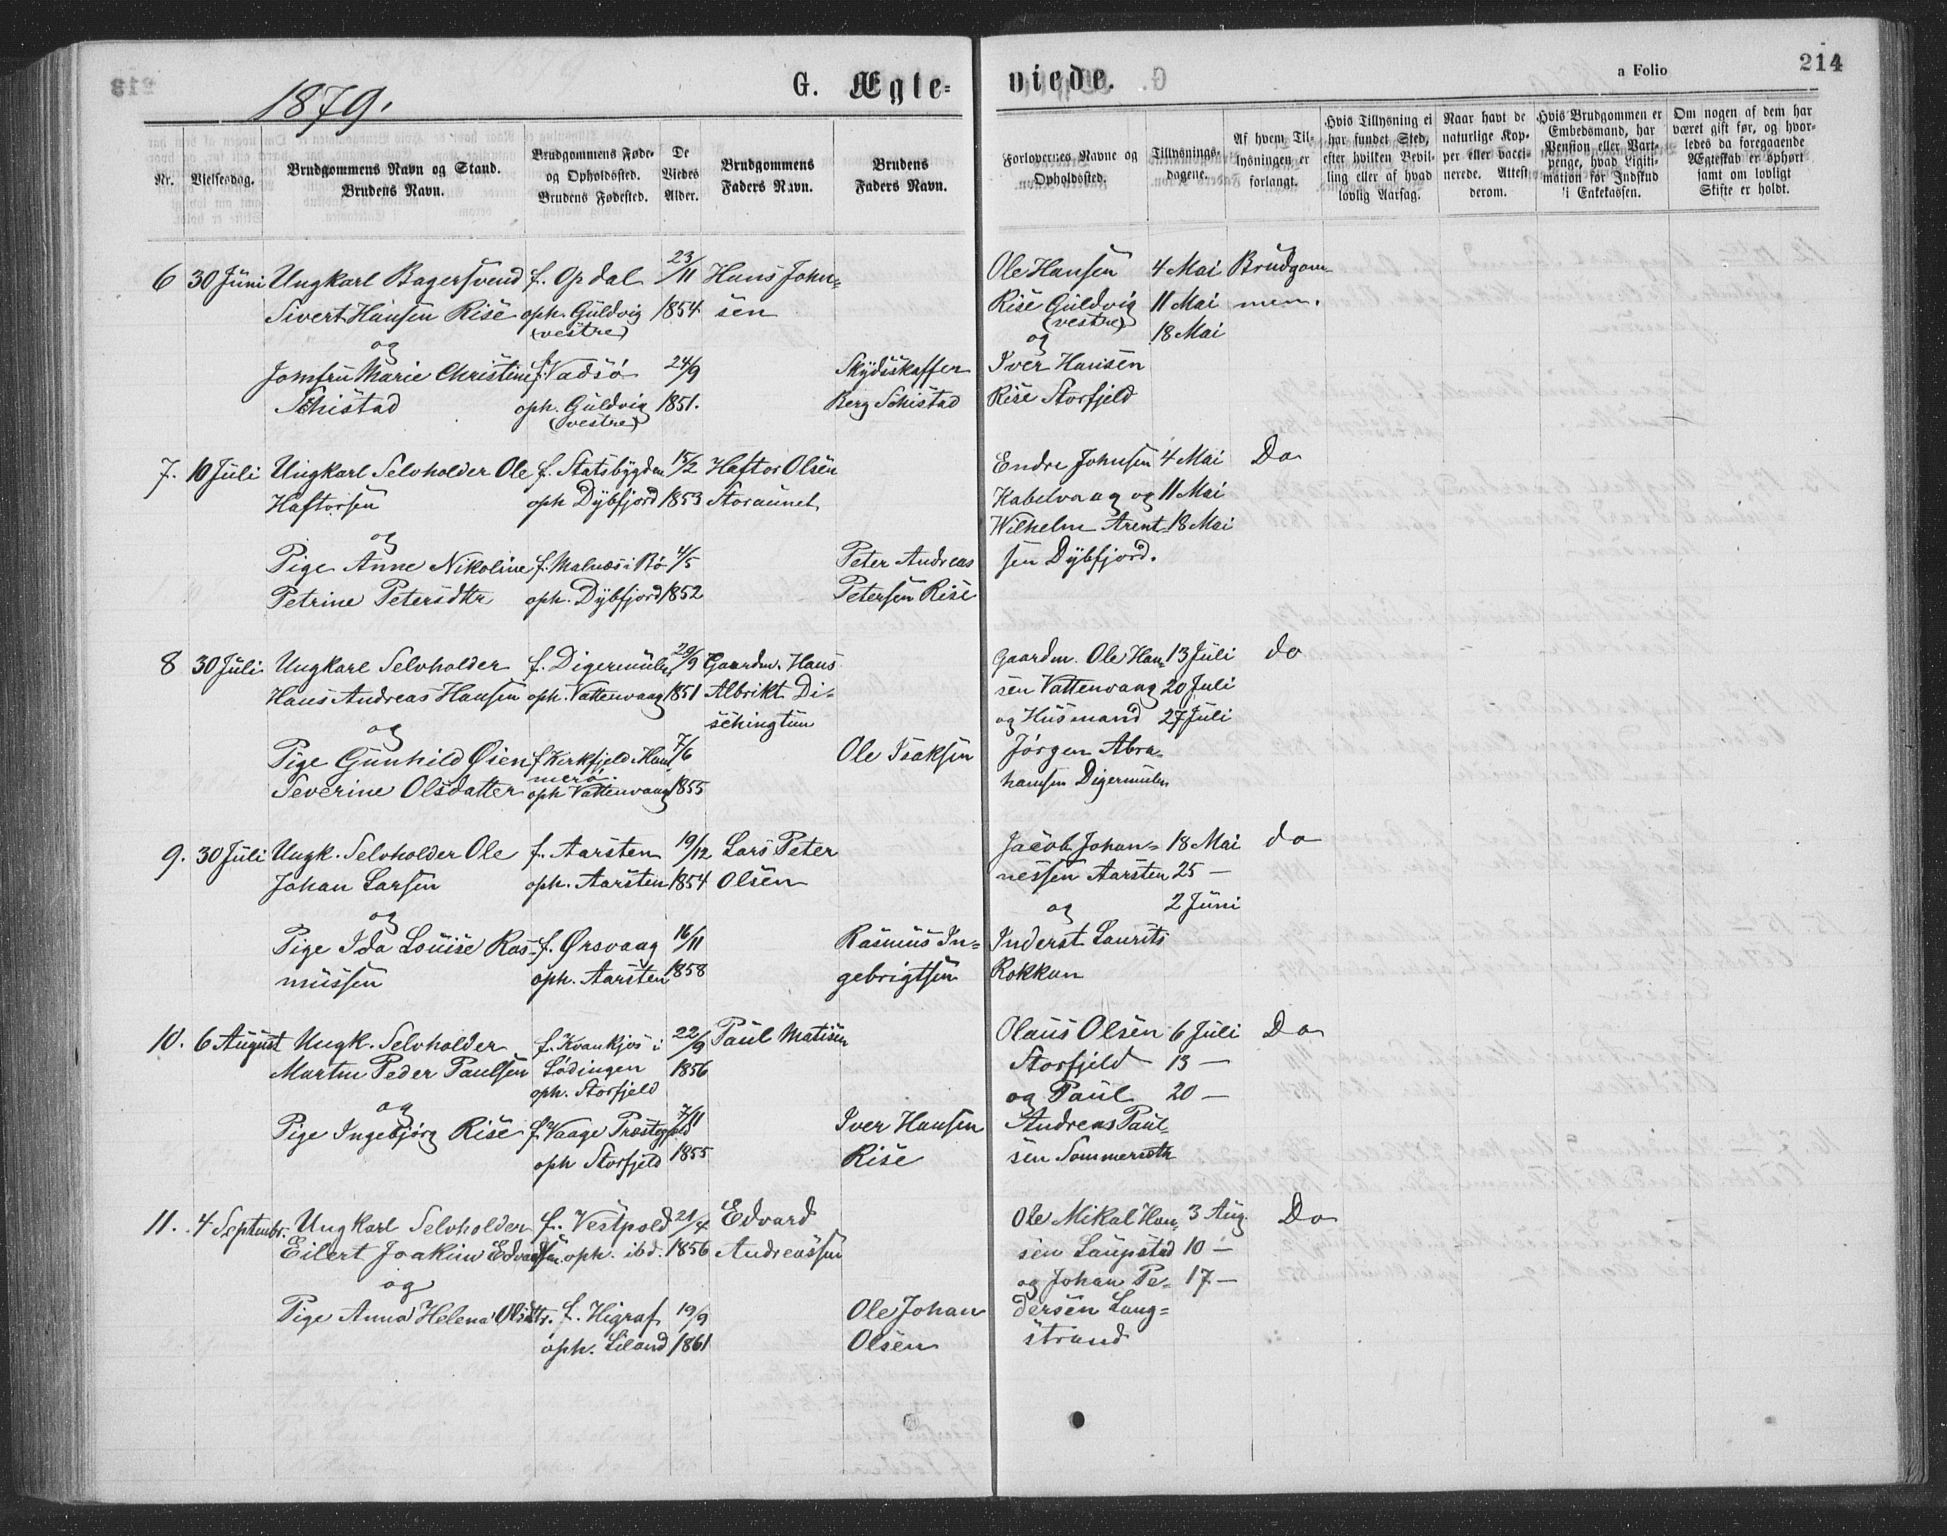 1879.
G. Ægte-
viede.
a Folio
214
Nr.
Vielsesdag.
Brudgommens Navn og Stand.
Brudens Navn.
Brudgommens Føde-
og Opholdssted.
Brudens Fødested.
De
Viedes
Alder.
Brudgommens
Faders Navn.
Brudens
Faders Navn.
Forlovernes Navne og
Opholdssted.
Tillysnings-
dagene.
Af hvem Til-
lysningen er
forlangt.
Hvis Tillysning ei
har fundet Sted,
efter hvilken Bevil-
ling eller af hvad
lovlig Aarsag.
Naar havt de
naturlige Kop-
per eller vacci-
nerede. Attest
derom.
Hvis Brudgommen er
Embedsmand, har
Pension eller Vart-
penge, hvad Ligiti-
mation for Indskud
i Enkekassen.
Om nogen af dem har
været gift før, og hvor-
ledes da foregaaende
Ægteskab er ophørt
samt om lovligt
Skifte er holdt.
6 30 Juni Ungkarl Bagersvend f. Opdal 23/11 Hans John- Ole Hansen 4 Mai Brudgom
Sivert Hansen Rise oph. Guldvig 1854 sen Rise Guldvig 11 Mai men.
(vestre) (vestre)
og og 18 Mai
Jomfru Marie Christine f. Vadsø 24/9 Skydsskaffer Iver Hansen
Schistad oph. Guldvig 1851. Berg Schistad Rise Storfjeld
(vestre)
7. 10 Juli Ungkarl Selvholder Ole f. Statsbygden 15/2 Haftor Olsen Endre Johnsen 4 Mai Do
Haftorsen oph Dybfjord 1853 Storaunet Kabelvaag og 11 Mai
Wilhelm Arent 18 Mai
og
Pige Anne Nikoline f. Malnæs i Bø 4/5 Peter Andreas sen Dybfjord.
Petrine Petersdtr oph. Dybfjord 1852 Petersen Rise
8 30 Juli Ungkarl Selvholder f. Digermulen 29/9 Gaardm. Hans Gaardm. Ole Han- 13 Juli do
Hans Andreas Hansen oph. Vattenvaag 1851 Albrikt Di- sen Vattenvaag 20 Juli
og schingtun og Husmand 27 Juli
Pige Gunhild Øien f. Kirkfjeld Ham 7/6 Ole Isaksen Jørgen Abra-
merø.
Severine Olsdatter oph Vattenvaag 1855 hamsen Digermulen
9. 30 Juli Ungk. Selvholder Ole f. Aarsten 19/12 Lars Peter Jacob Johan- 18 Mai do
Johan Larsen oph. Aarsten 1854 Olsen nessen Aarsten 25 —
og og 2 Juni
Pige Ida Louise Ras- f. Ørsvaag 16/11 Rasmus In- Inderst Laurits
mussen oph. Aarsten 1858 gebrigtsen Rokkan
10. 6 August Ungk. Selvholder f. Kvankjos i 22/9 Paul Matisen Olaus Olsen 6 Juli Do
Martin Peder Paulsen Lødingen 1856 Storfjeld 13 —
oph. Storfjeld og Paul 20 —
og
Pige Ingebjørg Rise f. Vaage Præstegjeld 7/11 Iver Hansen Andreas Paul-
oph Storfjeld 1855 Rise sen Sommerseth
11. 4 Septembr. Ungkarl Selvholder f. Vestpold 21/4 Edvard Ole Mikal Han- 3 Aug. Do
Eilert Joakim Edvardsen. oph. ibd. 1856 Andreassen sen Laupstad 10 —
og og Johan Pe- 17 —
Pige Anna Helena Olsdtr. f. Higraf 19/9 Ole Johan dersen Lang-
oph. Liland 1861 Olsen strand